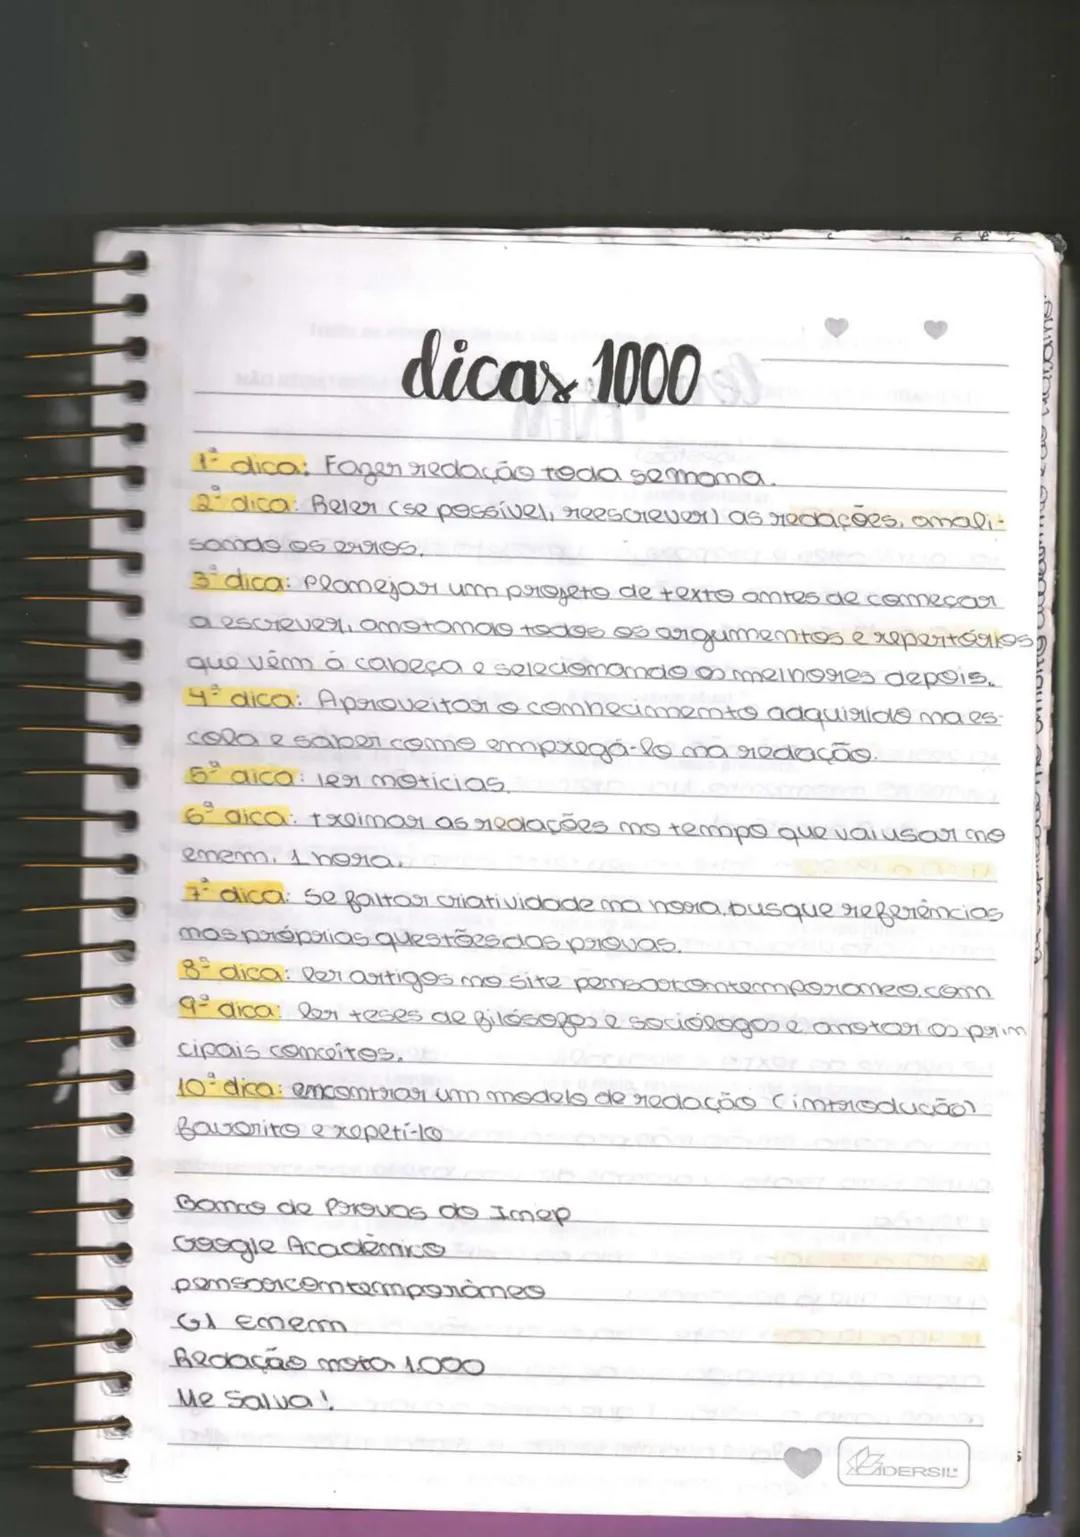 dicas 1000
1ª dica: Fazer redação toda semana.
2ª dica: Reler (se possível, reescrever) as redações, anali-
sando os erros.
3ª dica: Planejar um projeto de texto antes de começar
a escrever, anotando todos os argumentos e repertórios
que vêm à cabeça e selecionando os melhores depois.
4ª dica: Aproveitar o conhecimento adquirido na es-
cola e saber como empregá-lo na redação.
5ª dica: ler notícias.
6ª dica: treinar as redações no tempo que vai usar no
enem. 1 hora.
7ª dica: Se faltar criatividade na hora, busque referências
nas próprias questões das provas.
8ª dica: ler artigos no site pensarcontemporaneo.com
9ª dica: ler teses de filósofos e sociólogos e anotar os prin
cipais conceitos.
10ª dica: encontrar um modelo de redação (introdução)
favorito e repeti-lo
Banco de Provas do Inep
Google Acadêmico
pensarcontemporâneo
G1 Enem
Redação nota 1.000
Me Salva!
CADERSIL